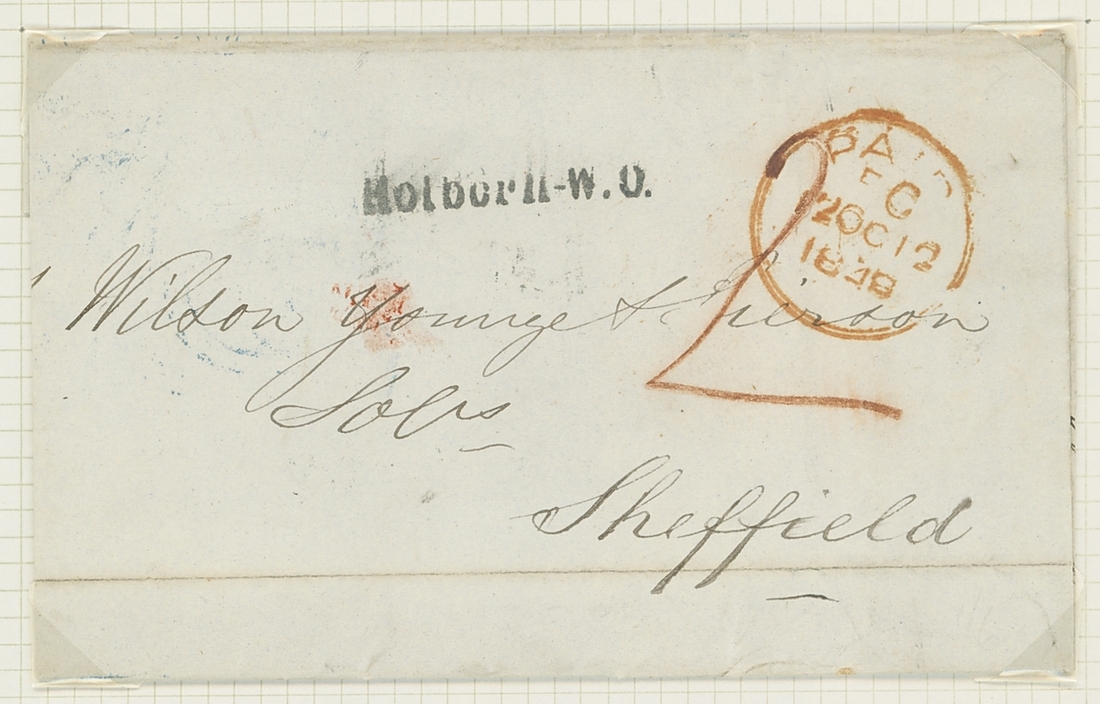 Holborn-W.O.
PAID
C
20OC12
1848
2
Wilson Younge & Pierson
Solrs
Sheffield